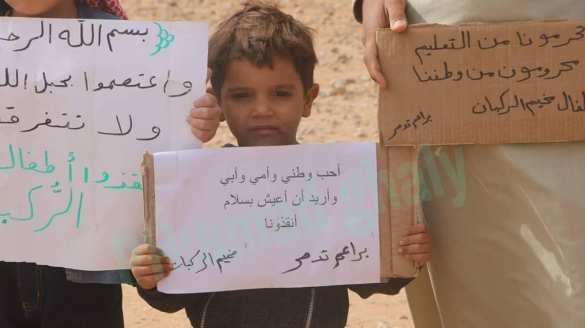 بسم الله الرحـ
واعتصموا بحبل الله
ولا تتفرقـ
نقذوا أطفال
الرُّكبـ
أحب وطني وأمي وأبي
وأريد أن أعيش بسلام
أنقذونا
براعم تدمر
مخيم الركبان
محرومونا من التعليم
محرومون من وطننا
أطفال مخيم الركبان
براعم تدمر